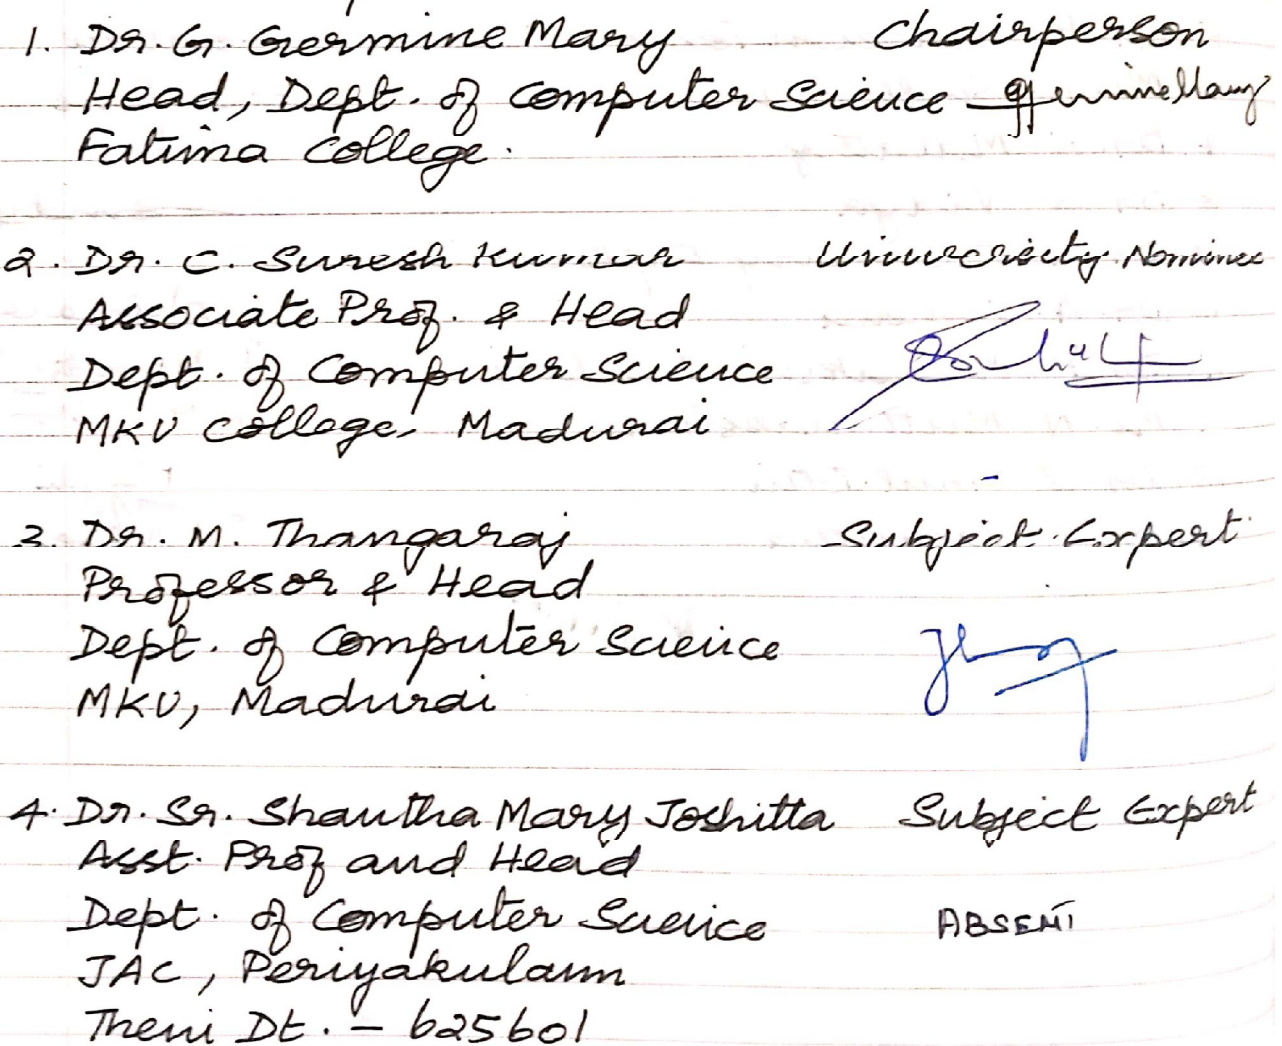 1. Dr. G. Germine Mary Chairperson
Head, Dept. of Computer Science
Fatima College.
2. Dr. C. Suresh Kumar University Nominee
Associate Prof. & Head
Dept. of Computer Science
MKU College, Madurai
3. Dr. M. Thangaraj Subject Expert
Professor & Head
Dept. of Computer Science
MKU, Madurai
4. Dr. Sr. Shantha Mary Joshitta Subject Expert
Asst. Prof and Head
Dept. of Computer Science ABSENT
JAC, Periyakulam
Theni Dt. - 625601